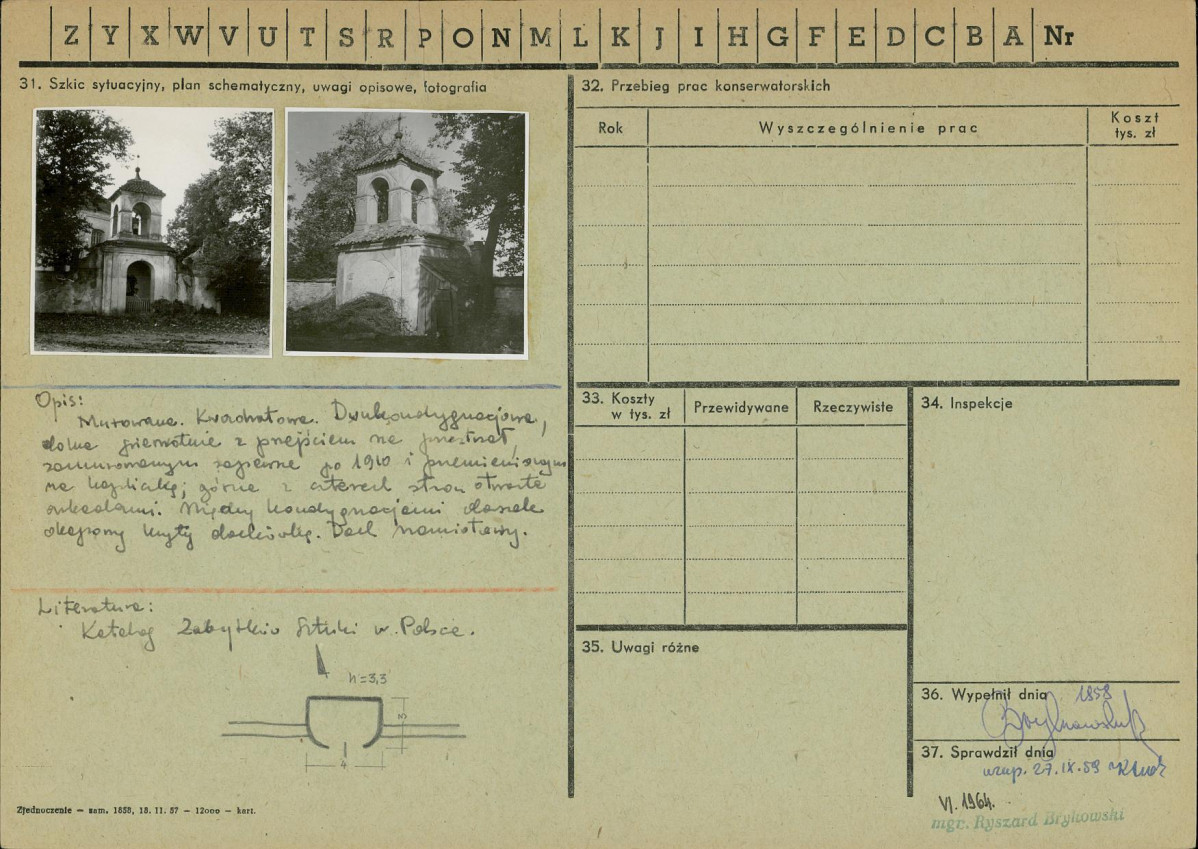 Z Y X W V U T S R P O N M L K J I H G F E D C B A Nr
31. Szkic sytuacyjny, plan schematyczny, uwagi opisowe, fotografia
Opis:
Murowana. Kwadratowa. Dwukondygnacjowa,
dolna pierwotnie z przejściem na przestrzał,
zamurowanym zapewne po 1910 i przemienionym
na kapliczkę; górna z czterech stron otwarta
arkadami. Między kondygnacjami daszek
okapowy kryty dachówką. Dach namiotowy.
Literatura:
Katalog Zabytków Sztuki w Polsce.
h=3,3
3
4
Zjednoczenie — zam. 1858, 18. II. 57 — 12000 — kart.
32. Przebieg prac konserwatorskich
Rok
Wyszczególnienie prac
Koszt
tys. zł
33. Koszty
w tys. zł
Przewidywane
Rzeczywiste
34. Inspekcje
35. Uwagi różne
36. Wypełnił dnia 1959
37. Sprawdził dnia
uzup. 27.IX.59
VI. 1964.
mgr. Ryszard Brykowski